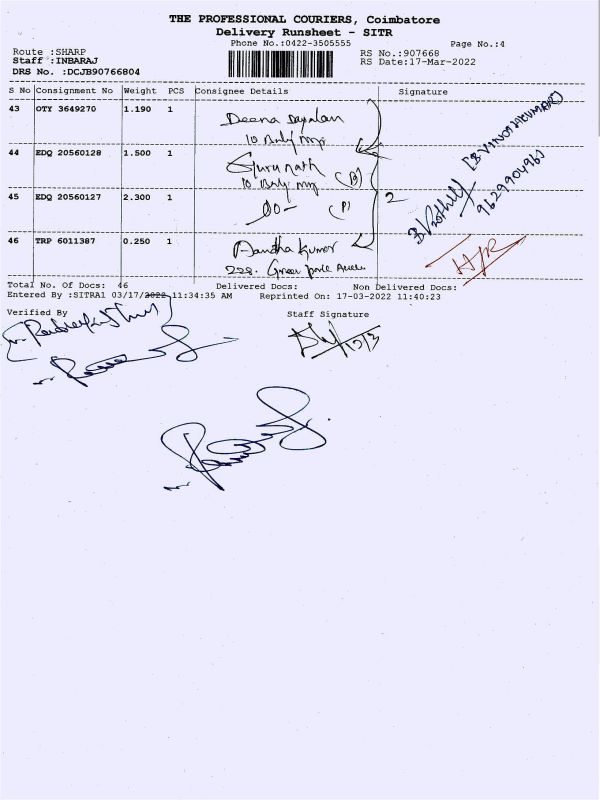 THE PROFESSIONAL COURIERS, Coimbatore
Delivery Runsheet - SITR
Phone No.:0422-3505555
Page No.:4
Route :SHARP
RS No.:907668
Staff :INBARAJ
RS Date:17-Mar-2022
DRS No. :DCJB90766804
S No Consignment No Weight PCS Consignee Details Signature
43 OTY 3649270 1.190 1 Deena Dayalan
10
44 EDQ 20560128 1.500 1 Gurunath (B)
10
45 EDQ 20560127 2.300 1 (P) 2
46 TRP 6011387 0.250 1 Kumar
228.
9629904963
Total No. Of Docs: 46 Delivered Docs: Non Delivered Docs:
Entered By :SITRA1 03/17/2022 11:34:35 AM Reprinted On: 17-03-2022 11:40:23
Verified By Staff Signature
17/3